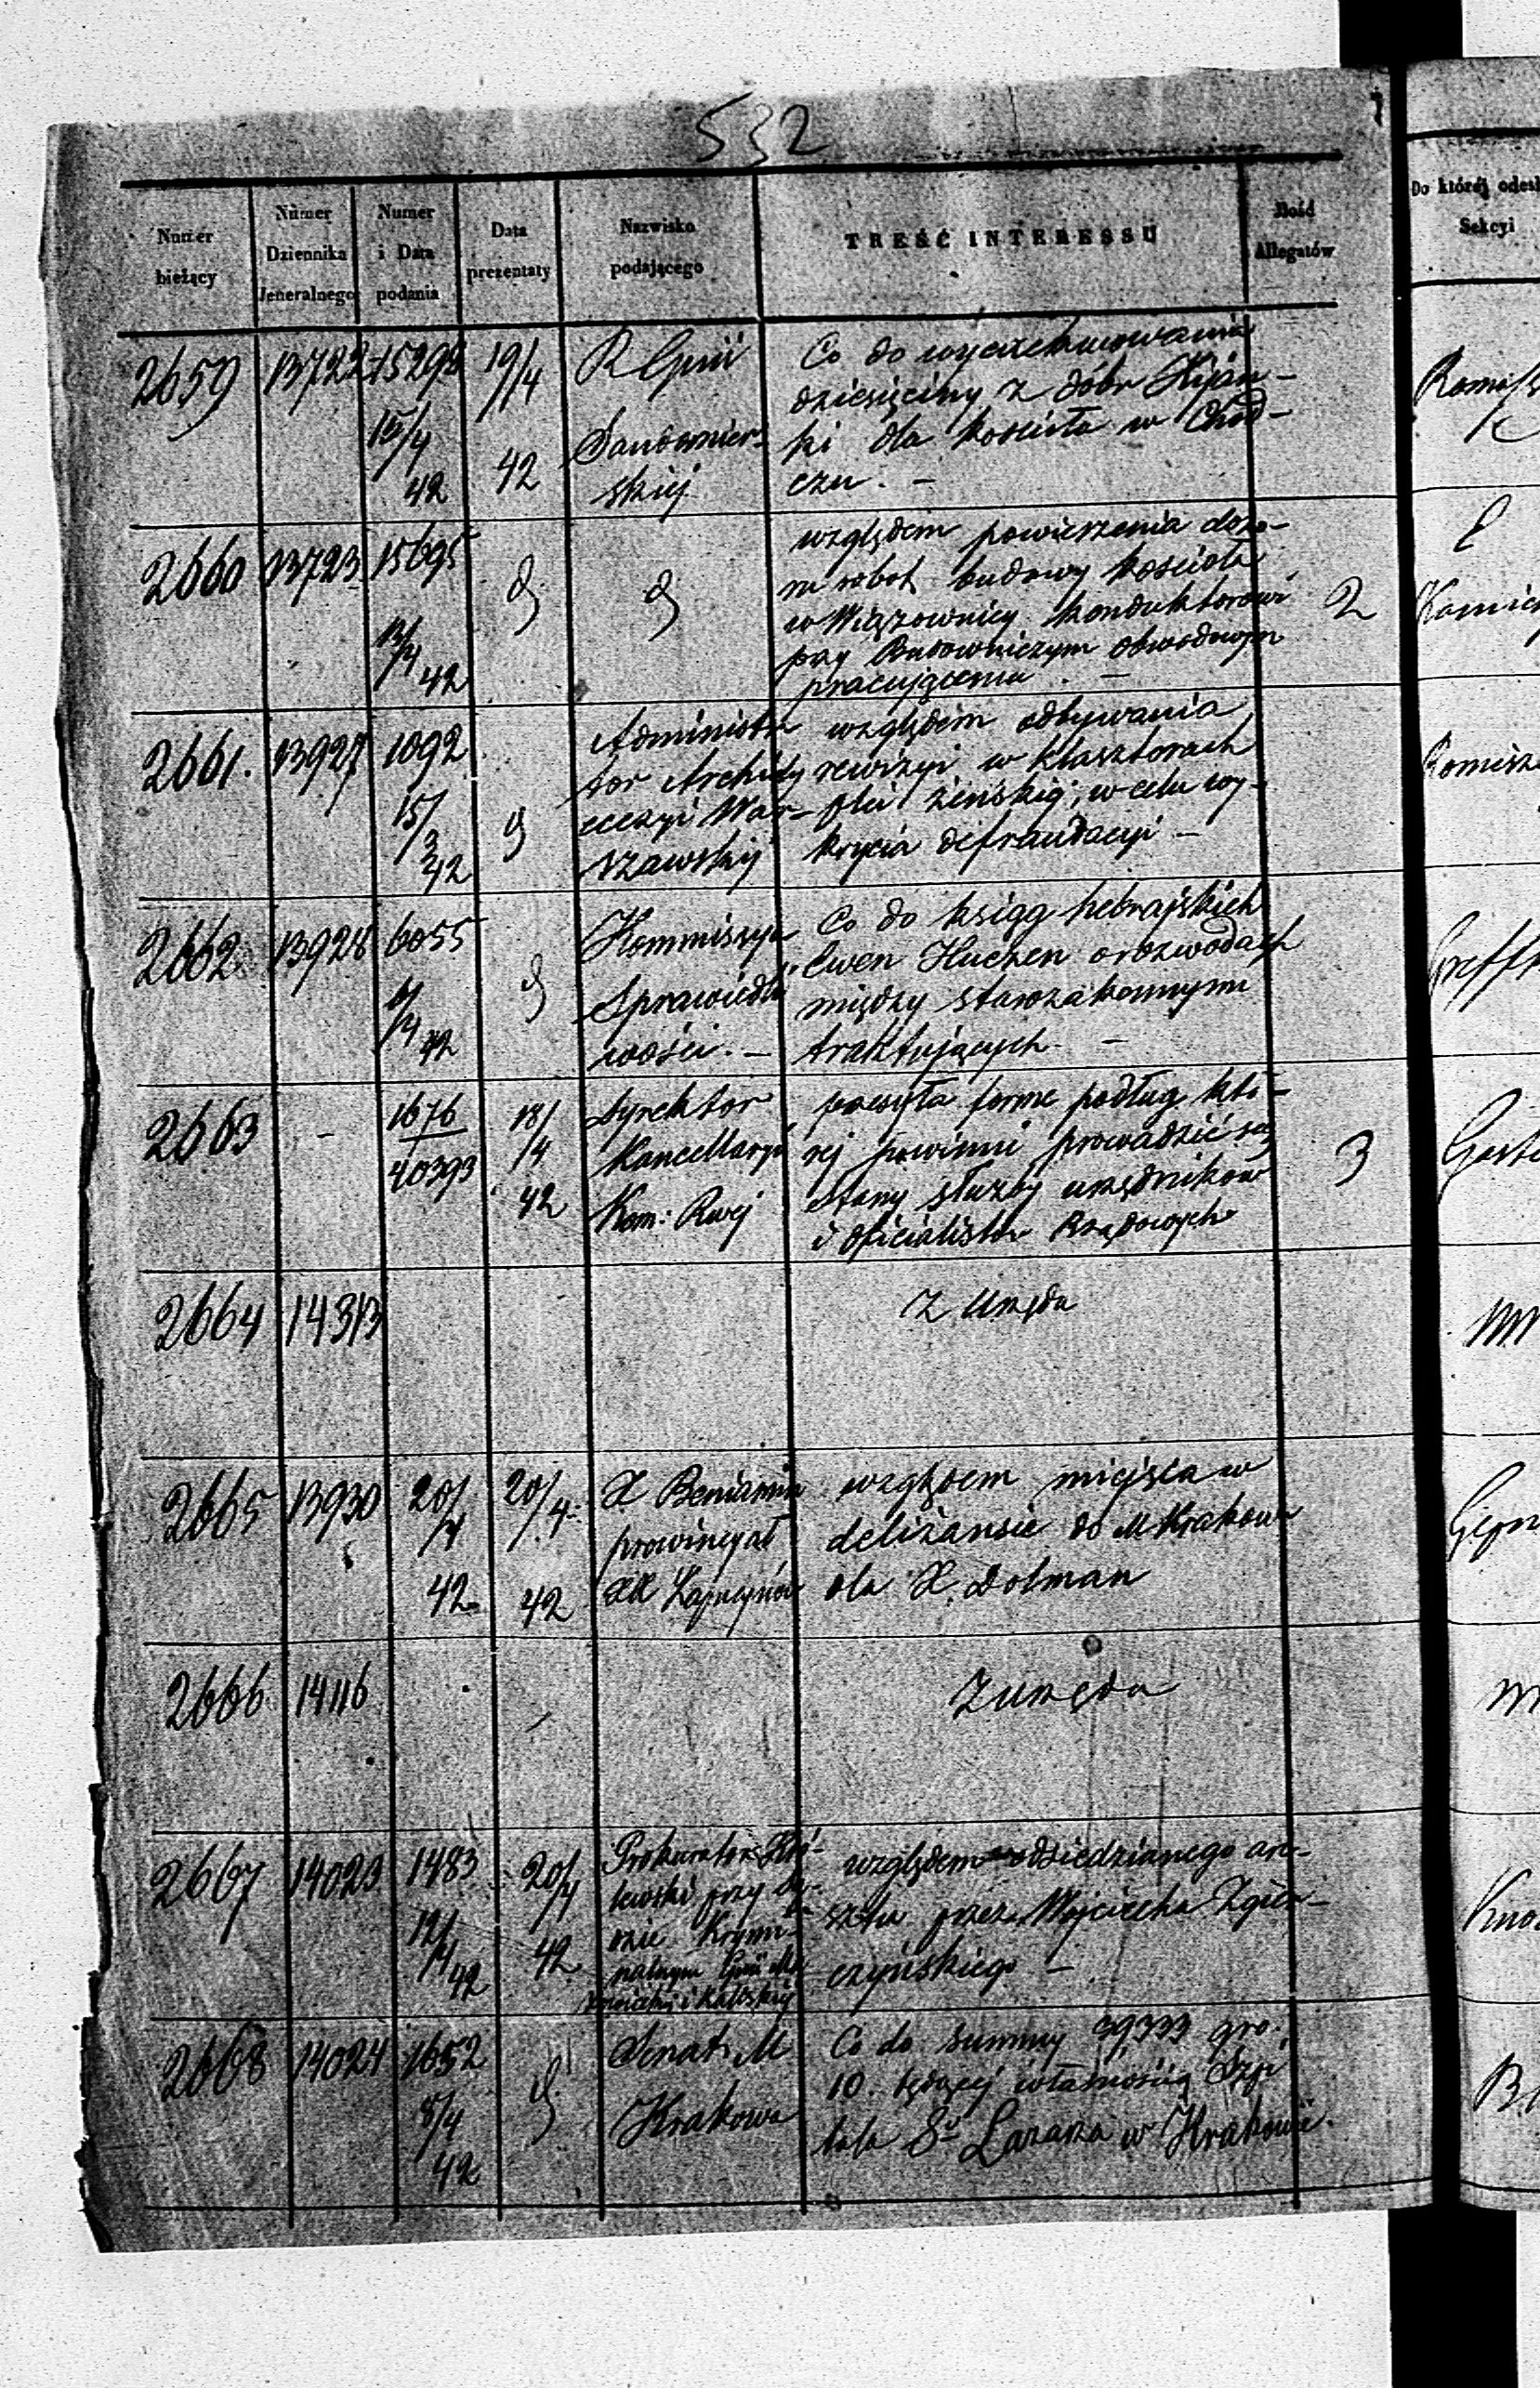 532
Numer
bieżący
Numer
Dziennika
Jeneralnego
Numer
i Data
podania
Data
prezentaty
Nazwisko
podającego
TREŚĆ INTERESSU
Ilość
Allegatów
Do której odesł
Sekcyi
2659
13722
15298
15/4
42
19/4
42
R Gpnii
Sandomier-
skiej
Co do wyexekwowania
dziesięciny z dóbr Kijan-
ki dla kościoła w Chod-
czu. –
2660
13723
15695
13/4
42
d
d
względem powierzenia dozo-
ru robot budowy kościoła
w Wiązownicy konduktorowi
przy Budowniczym Obwodowym
pracującemu. –
2
2661.
13927
1092
15/3
42
d
Administra
tor Archidy
ecezyi War-
szawskiej
względem odbywania
rewizyi w klasztorach
płci żeńskiej, w celu wy-
krycia defraudacyi –
2662
13928
6055
6/4
42
d
Kommissya
Sprawiedli
wości. –
Co do ksiąg hebrajskich
Ewen Huczen o rozwodach
między starozakonnymi
traktujących. –
2663
–
1676
40393
18/4
42
Dyrektor
Kancellaryi
Kom: Rwej
przesyła formę podług któ-
rej powinni prowadzić się
stany służby urzędników
i oficialistów Rządowych
3
2664
14313
Z Urzędu
2665
13930
20/4
42
20/4
42
X Beniamin
prowincyał
XX Kapucynów
względem miejsca w
deliżansie do M Krakowa
dla X. Dolman
2666
14116
Z urzędu
2667
14023
1483
12/4
42
20/4
42
Prokurator Kró-
lewski przy Są-
dzie Krymi-
nalnym Gpnii Ma
zowieckiej i Kaliskiej
względem odsiedzianego are-
sztu przez Wojciecha Zgier-
czyńskiego –
2668
14024
1652
8/4
42
d
Senat M
Krakowa
Co do summy 39,333 gro.
10. będącej własnością Szpi
tala Sgo Łazarza w Krakowie.